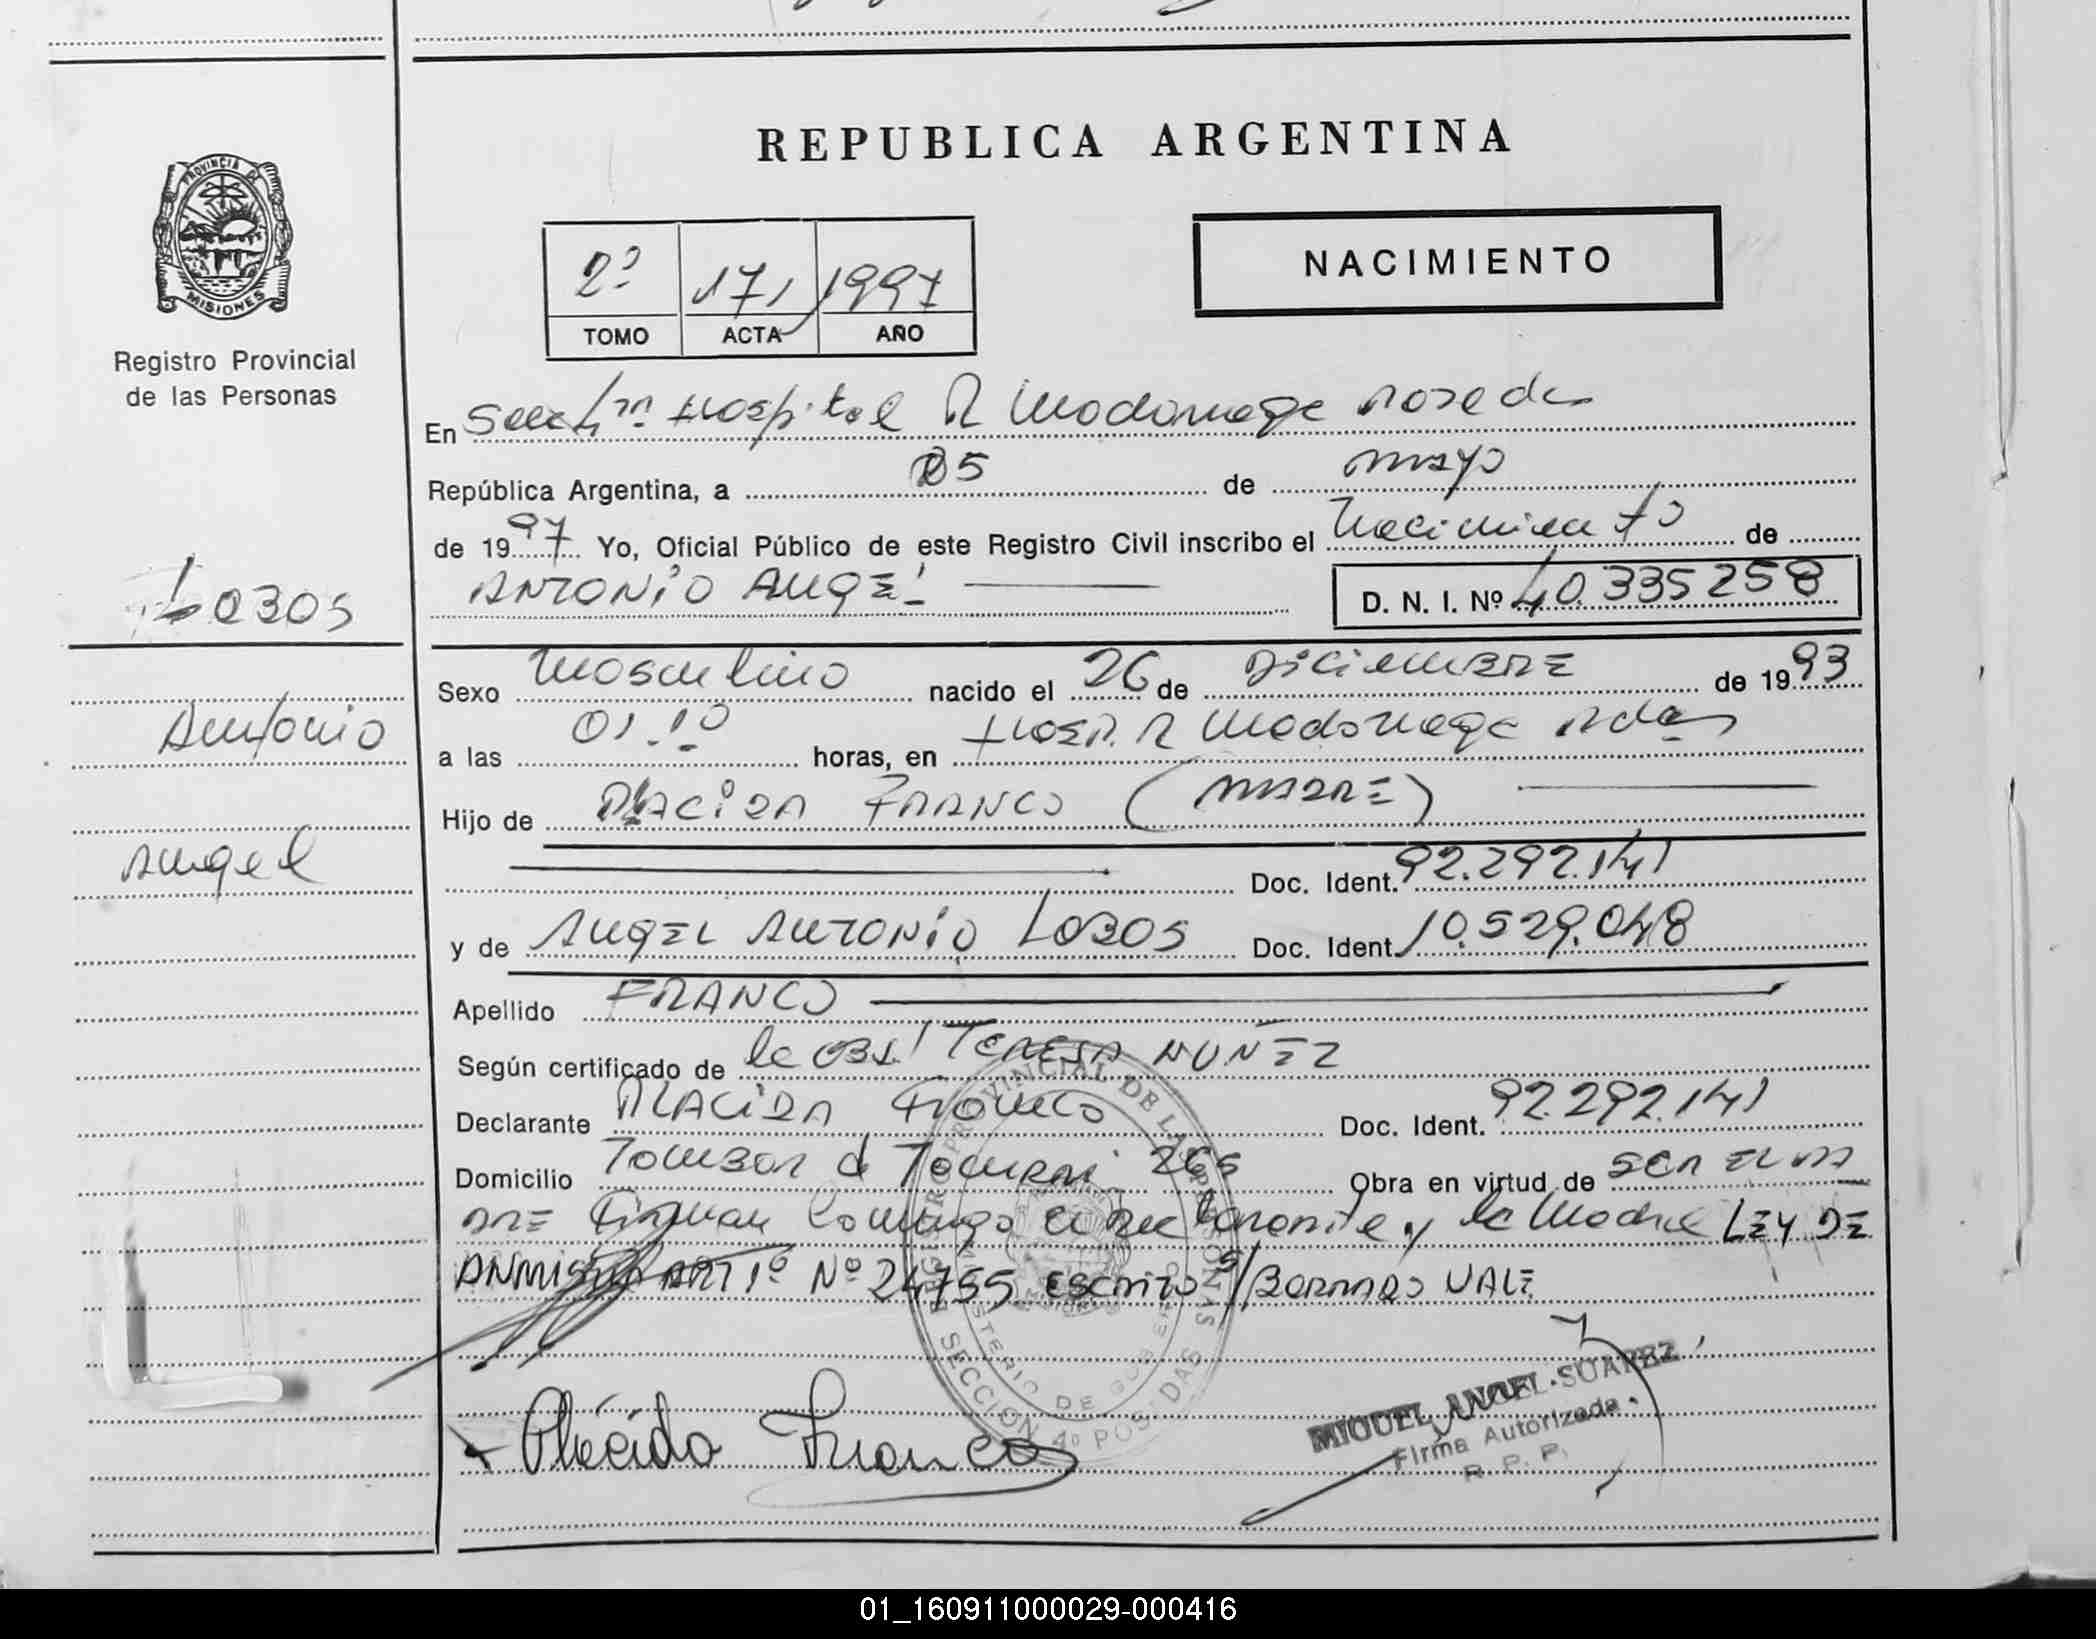 REPUBLICA ARGENTINA
PROVINCIA DE
MISIONES
Registro Provincial
de las Personas
2º 171 1997
TOMO ACTA AÑO
NACIMIENTO
En Secc 4ta Hospital R Madariaga Posadas
República Argentina, a 05 de mayo
de 1997 Yo, Oficial Público de este Registro Civil inscribo el Nacimiento de
ANTONIO ANGEL D. N. I. Nº 40.335258
LOBOS
Antonio
Angel
Sexo Masculino nacido el 26 de DICIEMBRE de 1993
a las 01.10 horas, en HOSP. R Madariaga Pdas
Hijo de PLACIDA FRANCO (MADRE)
Doc. Ident. 92.292.141
y de ANGEL ANTONIO LOBOS Doc. Ident. 10.529.048
Apellido FRANCO
Según certificado de la OBST TERESA NUÑEZ
Declarante PLACIDA Franco Doc. Ident. 92.292.141
Domicilio 265 Obra en virtud de SER EL PA
DRE Firman Conmigo el declarante y la Madre LEY DE
AMNISTIA ART 1º Nº 24755 escrito s/ BORRADO VALE
REGISTRO PROVINCIAL DE LAS PERSONAS
MINISTERIO DE GOBIERNO
SECCION 4º POSADAS
Plácida Franco
MIGUEL ANGEL SUAREZ
Firma Autorizada
R. P. P.
01_160911000029-000416